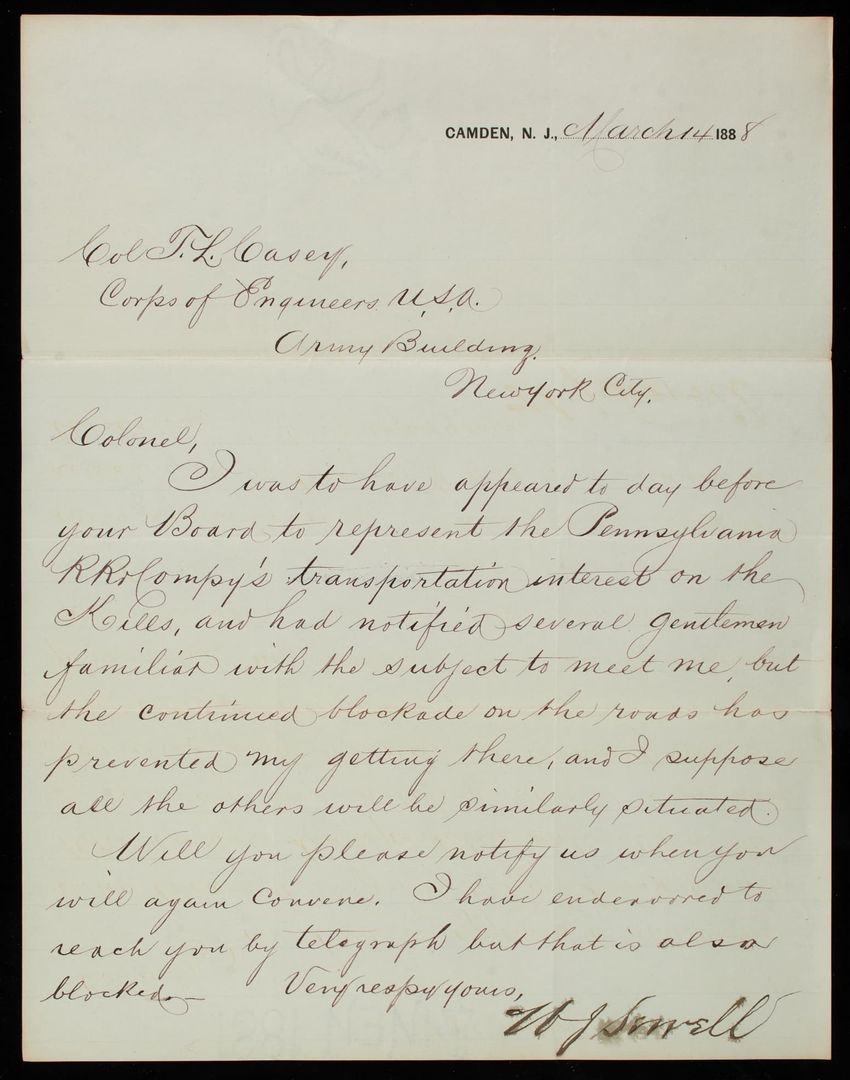 CAMDEN, N. J., March 14 1888
Col T. L. Casey,
Corps of Engineers U.S.A.
Army Building.
New York City.
Colonel,
I was to have appeared to day before
your Board to represent the Pennsylvania
RRd Compy's transportation interest on the
Kills, and had notified several gentlemen
familiar with the subject to meet me, but
the continued blockade on the roads has
prevented my getting there, and I suppose
all the others will be similarly situated.
Will you please notify us when you
will again convene. I have endeavored to
reach you by telegraph but that is also
blocked.— Very respy yours,
W J Sewell